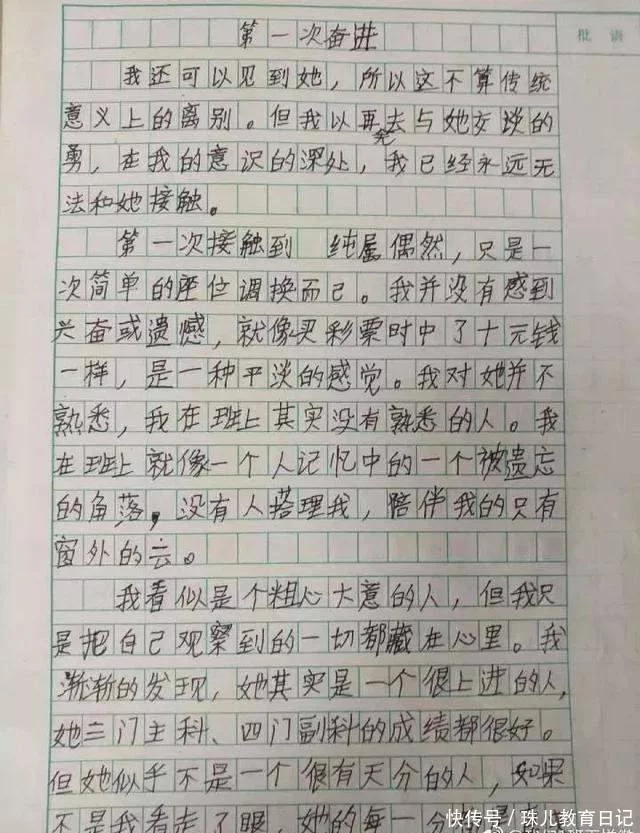 第一次奋进
批语
我还可以见到她，所以这不算传统
意义上的离别。但我以再去与她交谈的
勇，在我的意识的深处，我已经永远无
法和她接触。
第一次接触到 纯属偶然，只是一
次简单的座位调换而已。我并没有感到
兴奋或遗憾，就像买彩票时中了十元钱
一样，是一种平淡的感觉。我对她并不
熟悉，我在班上其实没有熟悉的人。我
在班上就像一个人记忆中的一个被遗忘
的角落，没有人搭理我，陪伴我的只有
窗外的云。
我看似是个粗心大意的人，但我只
是把自己观察到的一切都藏在心里。我
渐渐的发现，她其实是一个很上进的人，
她三门主科、四门副科的成绩都很好。
但她似乎不是一个很有天分的人，如果
不是我看走了眼，她的每一分
快传号／珠儿教育日记